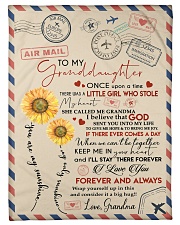 AIR MAIL
TO MY
Granddaughter
ONCE upon a time
THERE WAS A LITTLE GIRL WHO STOLE
My heart
SHE CALLED ME GRANDMA
I believe that GOD
SENT YOU INTO MY LIFE
TO GIVE ME HOPE & TO BRING ME JOY.
IF THERE EVER COMES A DAY
When we can't be together
KEEP ME IN your heart
and I'LL STAY THERE FOREVER
I Love You
FOREVER AND ALWAYS
Wrap yourself up in this
and consider it a big hug!
Love, Grandma
you are my sunshine